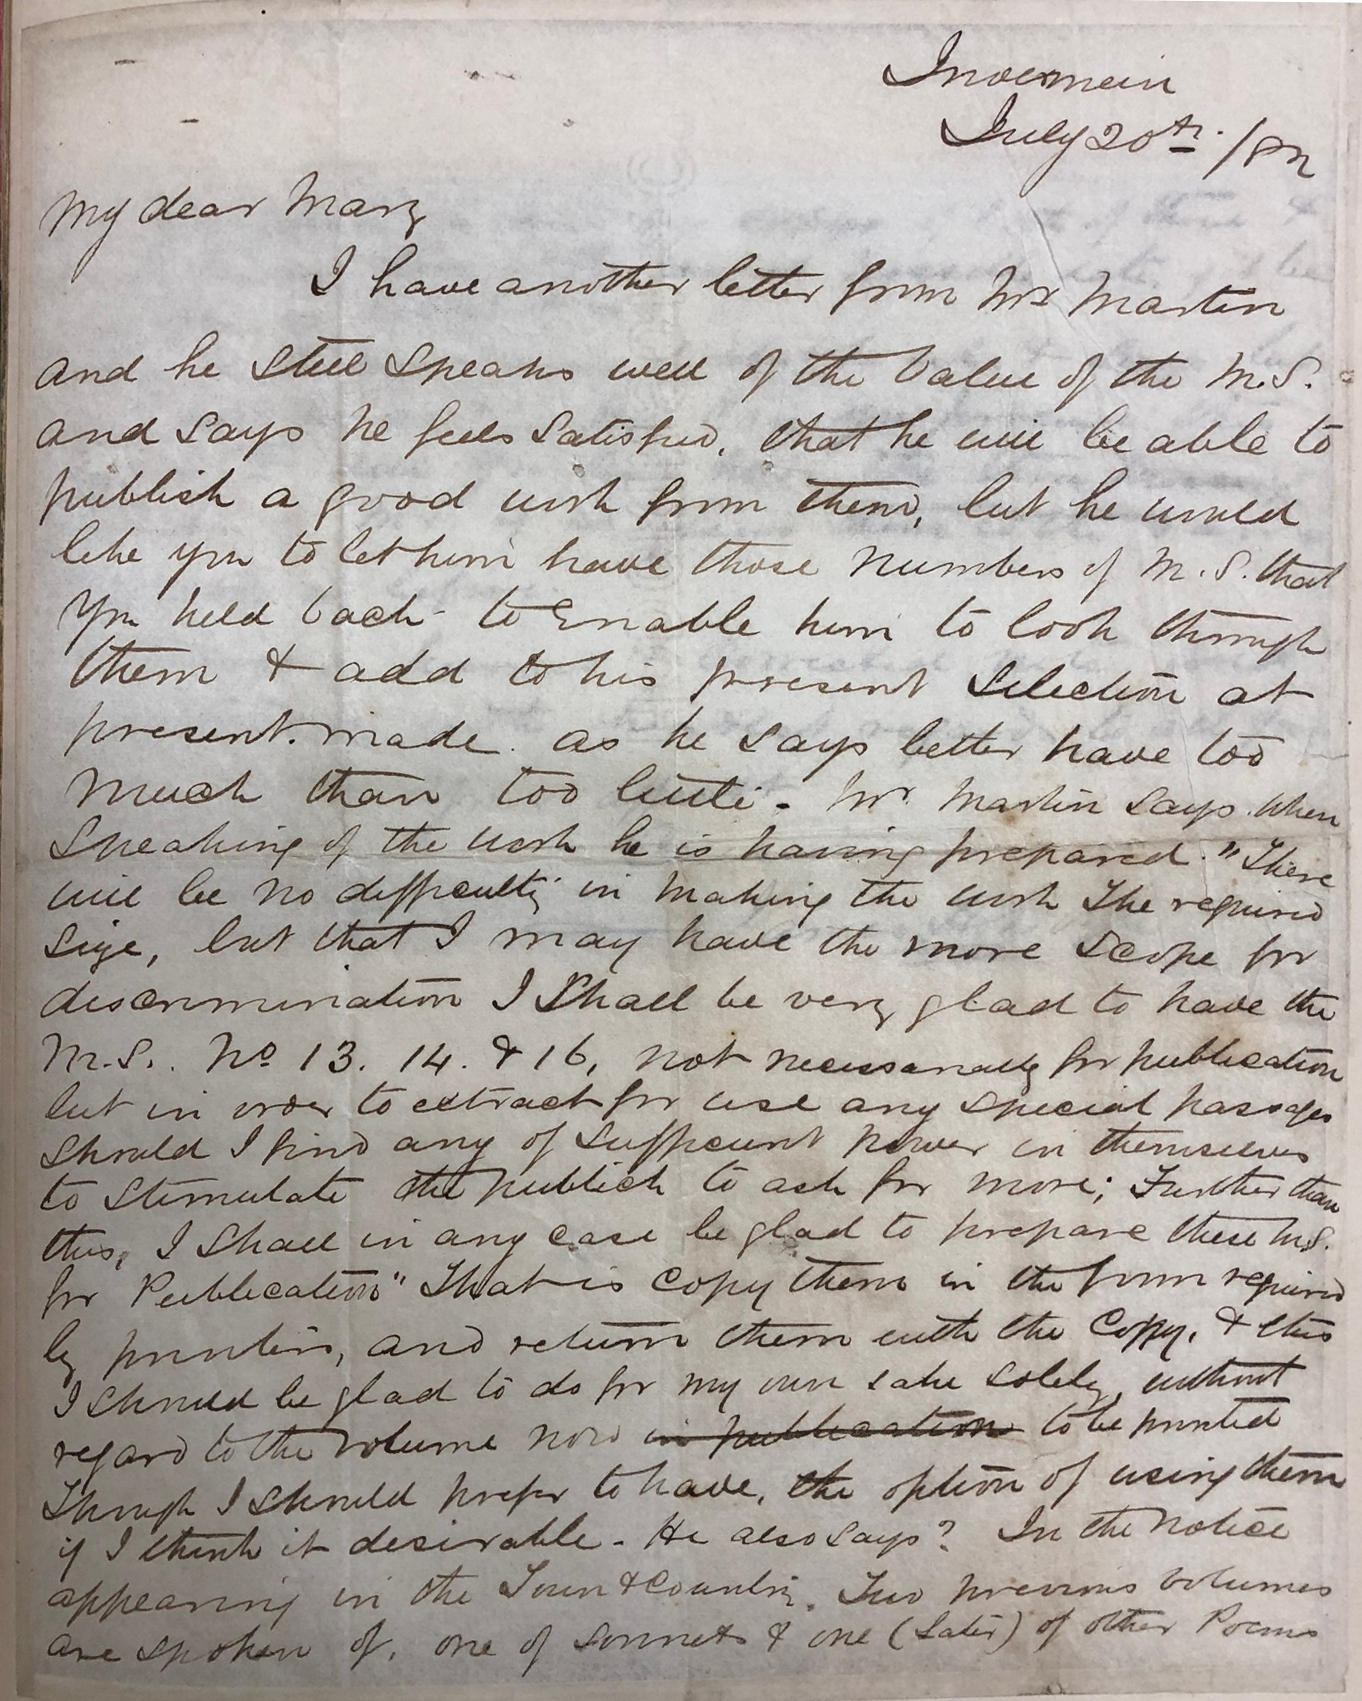 Invermein
July 20th. /82
My dear Mary
I have another letter from Mr Martin
and he still speaks well of the value of the M.S.
and says he feels satisfied, that he will be able to
publish a good work from them, but he would
like you to let him have those numbers of M.S. that
you held back to Enable him to look through
them & add to his present selection at
present made. as he says better have too
much than too little - Mr Martin says when
speaking of the work he is having prepared. "There
will be no difficulty in making the work the required
size, but that I may have the more scope for
discrimination I shall be very glad to have the
M.S. No 13. 14. & 16, not necessarily for publication
but in order to extract for use any special passages
should I find any of sufficient power in themselves
to stimulate the publick to ask for more; Further than
this, I shall in any case be glad to prepare these M.S.
for Publication" That is copy them in the form required
by printers, and return them with the Copy, & this
I should be glad to do for my own sake solely, without
regard to the volume now in publication to be printed
Though I should prefer to have, the option of using them
if I think it desirable - He also says? In the notice
appearing in the Town & Country. Two previous volumes
are spoken of, one of sonnets & one (Later) of other Poems